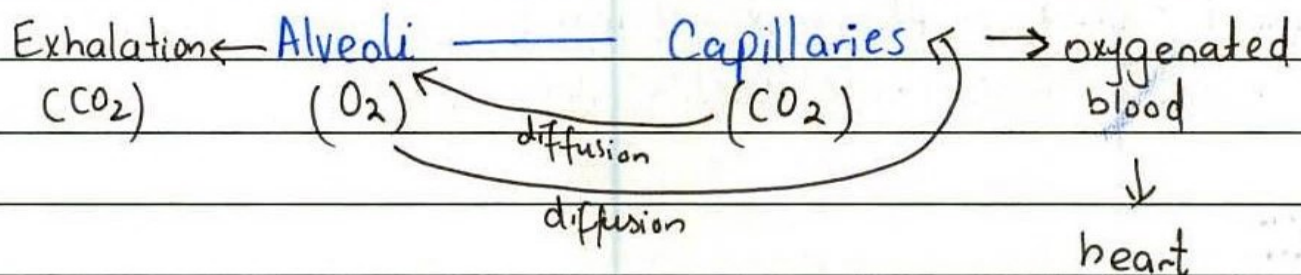 Exhalation ← Alveoli — Capillaries → oxygenated
(CO₂) (O₂) (CO₂) blood
diffusion
↓
diffusion
heart